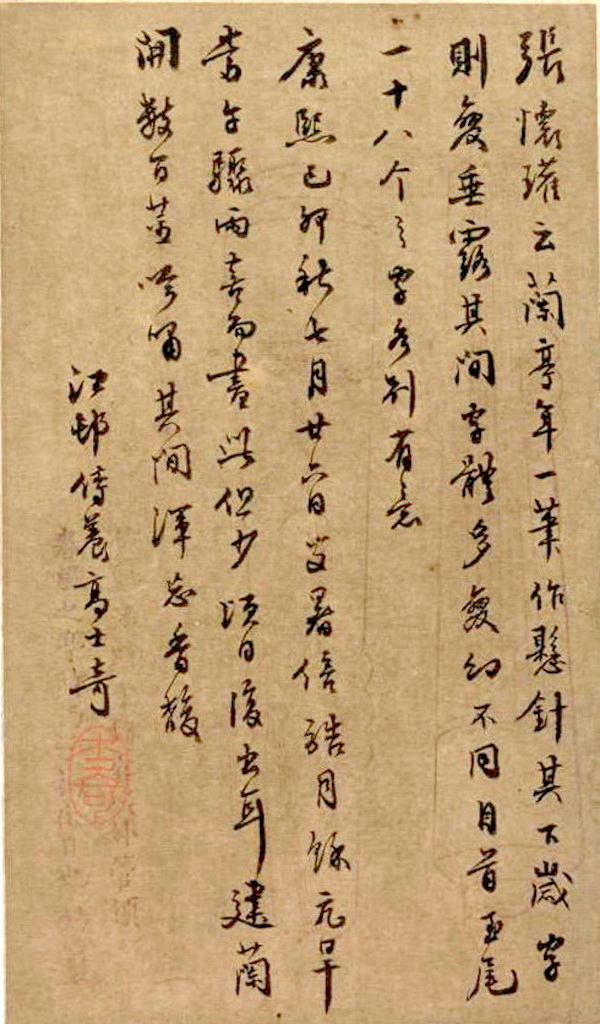 張懷瓘云蘭亭年一筆作懸針其下歲字
則變垂露其間字體多變幻不同自首至尾
一十八个之字各別有意
康熙己卯秋七月廿六日暑倍酷月餘亢旱
當午驟雨喜而書此但少頃日復出耳建蘭
開數百莖吟嘯其間渾忘香馥
江邨侍養高士奇
士奇